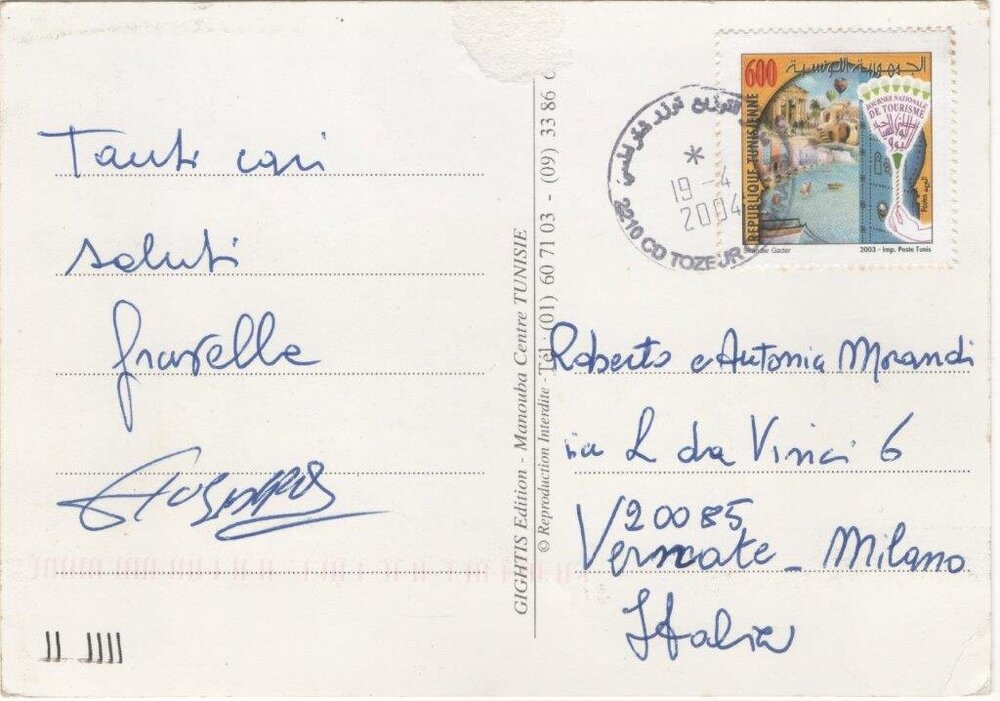 Tanti cari
saluti
Graziella
GIGHTIS Edition - Manouba Centre TUNISIE
© Reproduction Interdite - Tél: (01) 60 71 03 - (09) 33 86
600
الجمهورية التونسية
REPUBLIQUE TUNISIENNE
JOURNEE NATIONALE
DE TOURISME
2003 - Imp. Poste Tunis
19 - 4
2004
2210 CD TOZEUR
Roberto e Antonia Morandi
via L da Vinci 6
20085
Vernate - Milano
Italia